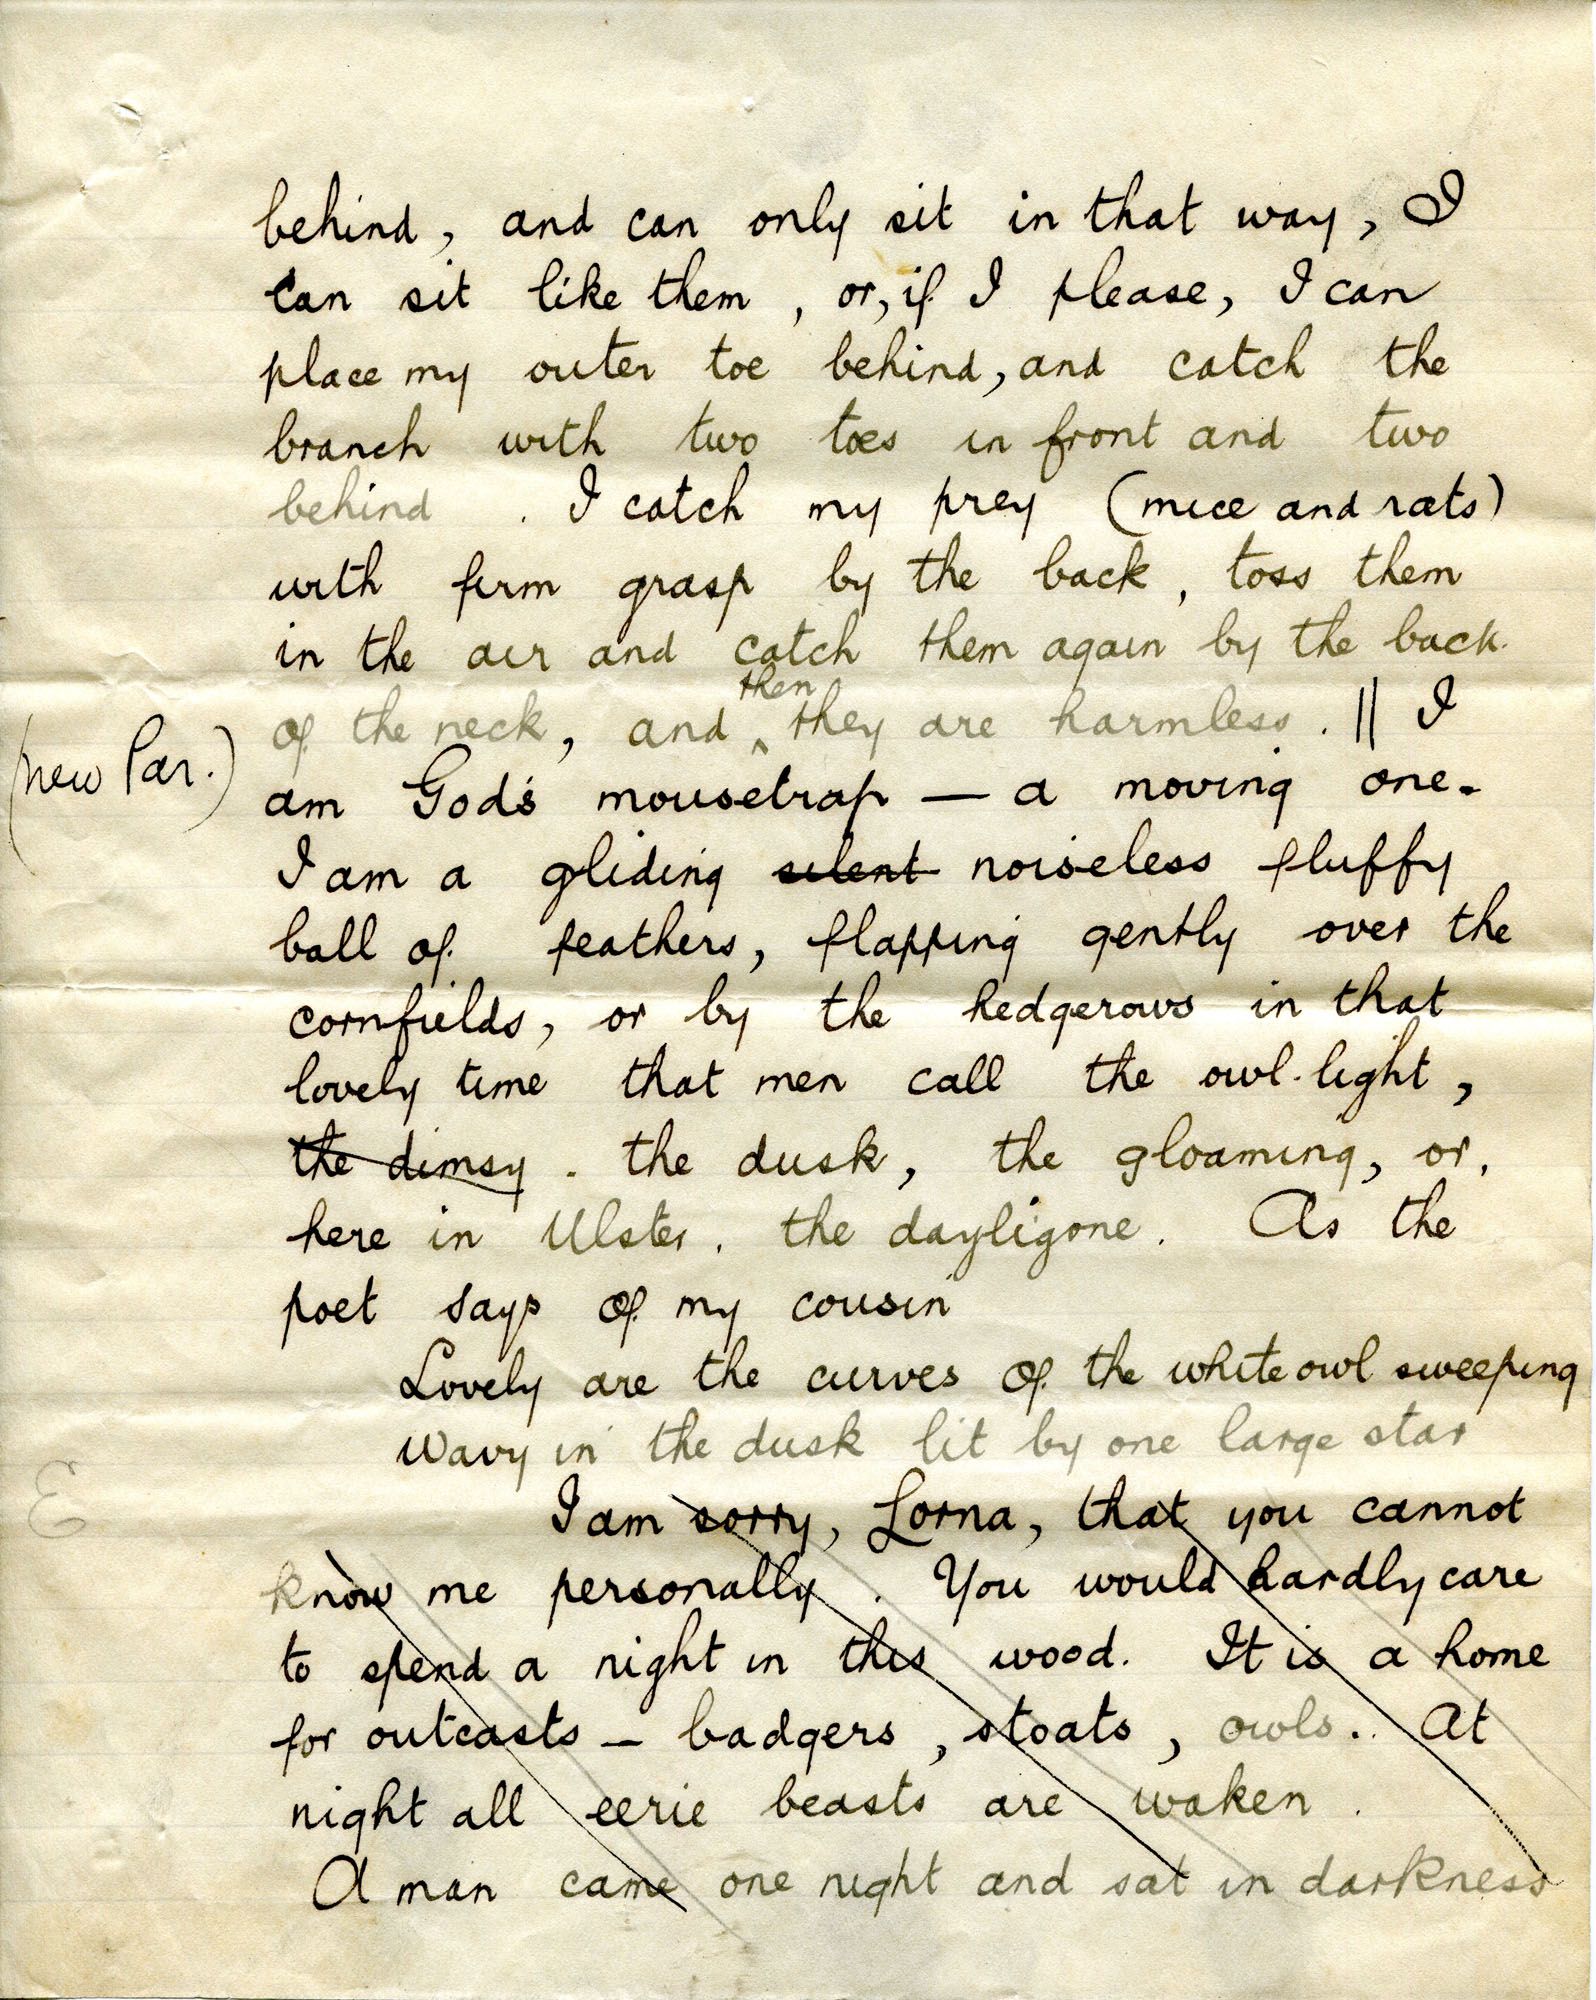 behind, and can only sit in that way, I
can sit like them, or, if I please, I can
place my outer toe behind, and catch the
branch with two toes in front and two
behind. I catch my prey (mice and rats)
with firm grasp by the back, toss them
in the air and catch them again by the back.
then
of the neck, and ^ they are harmless. || I
(new Par.)
am God's mousetrap — a moving one.
I am a gliding silent noiseless fluffy
ball of feathers, flapping gently over the
cornfields, or by the hedgerows in that
lovely time that men call the owl-light,
the dimsy. the dusk, the gloaming, or,
here in Ulster, the dayligone. As the
poet says of my cousin
Lovely are the curves of the white owl sweeping
Wavy in the dusk lit by one large star
I am sorry, Lorna, that you cannot
know me personally. You would hardly care
to spend a night in this wood. It is a home
for outcasts — badgers, stoats, owls. At
night all eerie beasts are waken.
A man came one night and sat in darkness